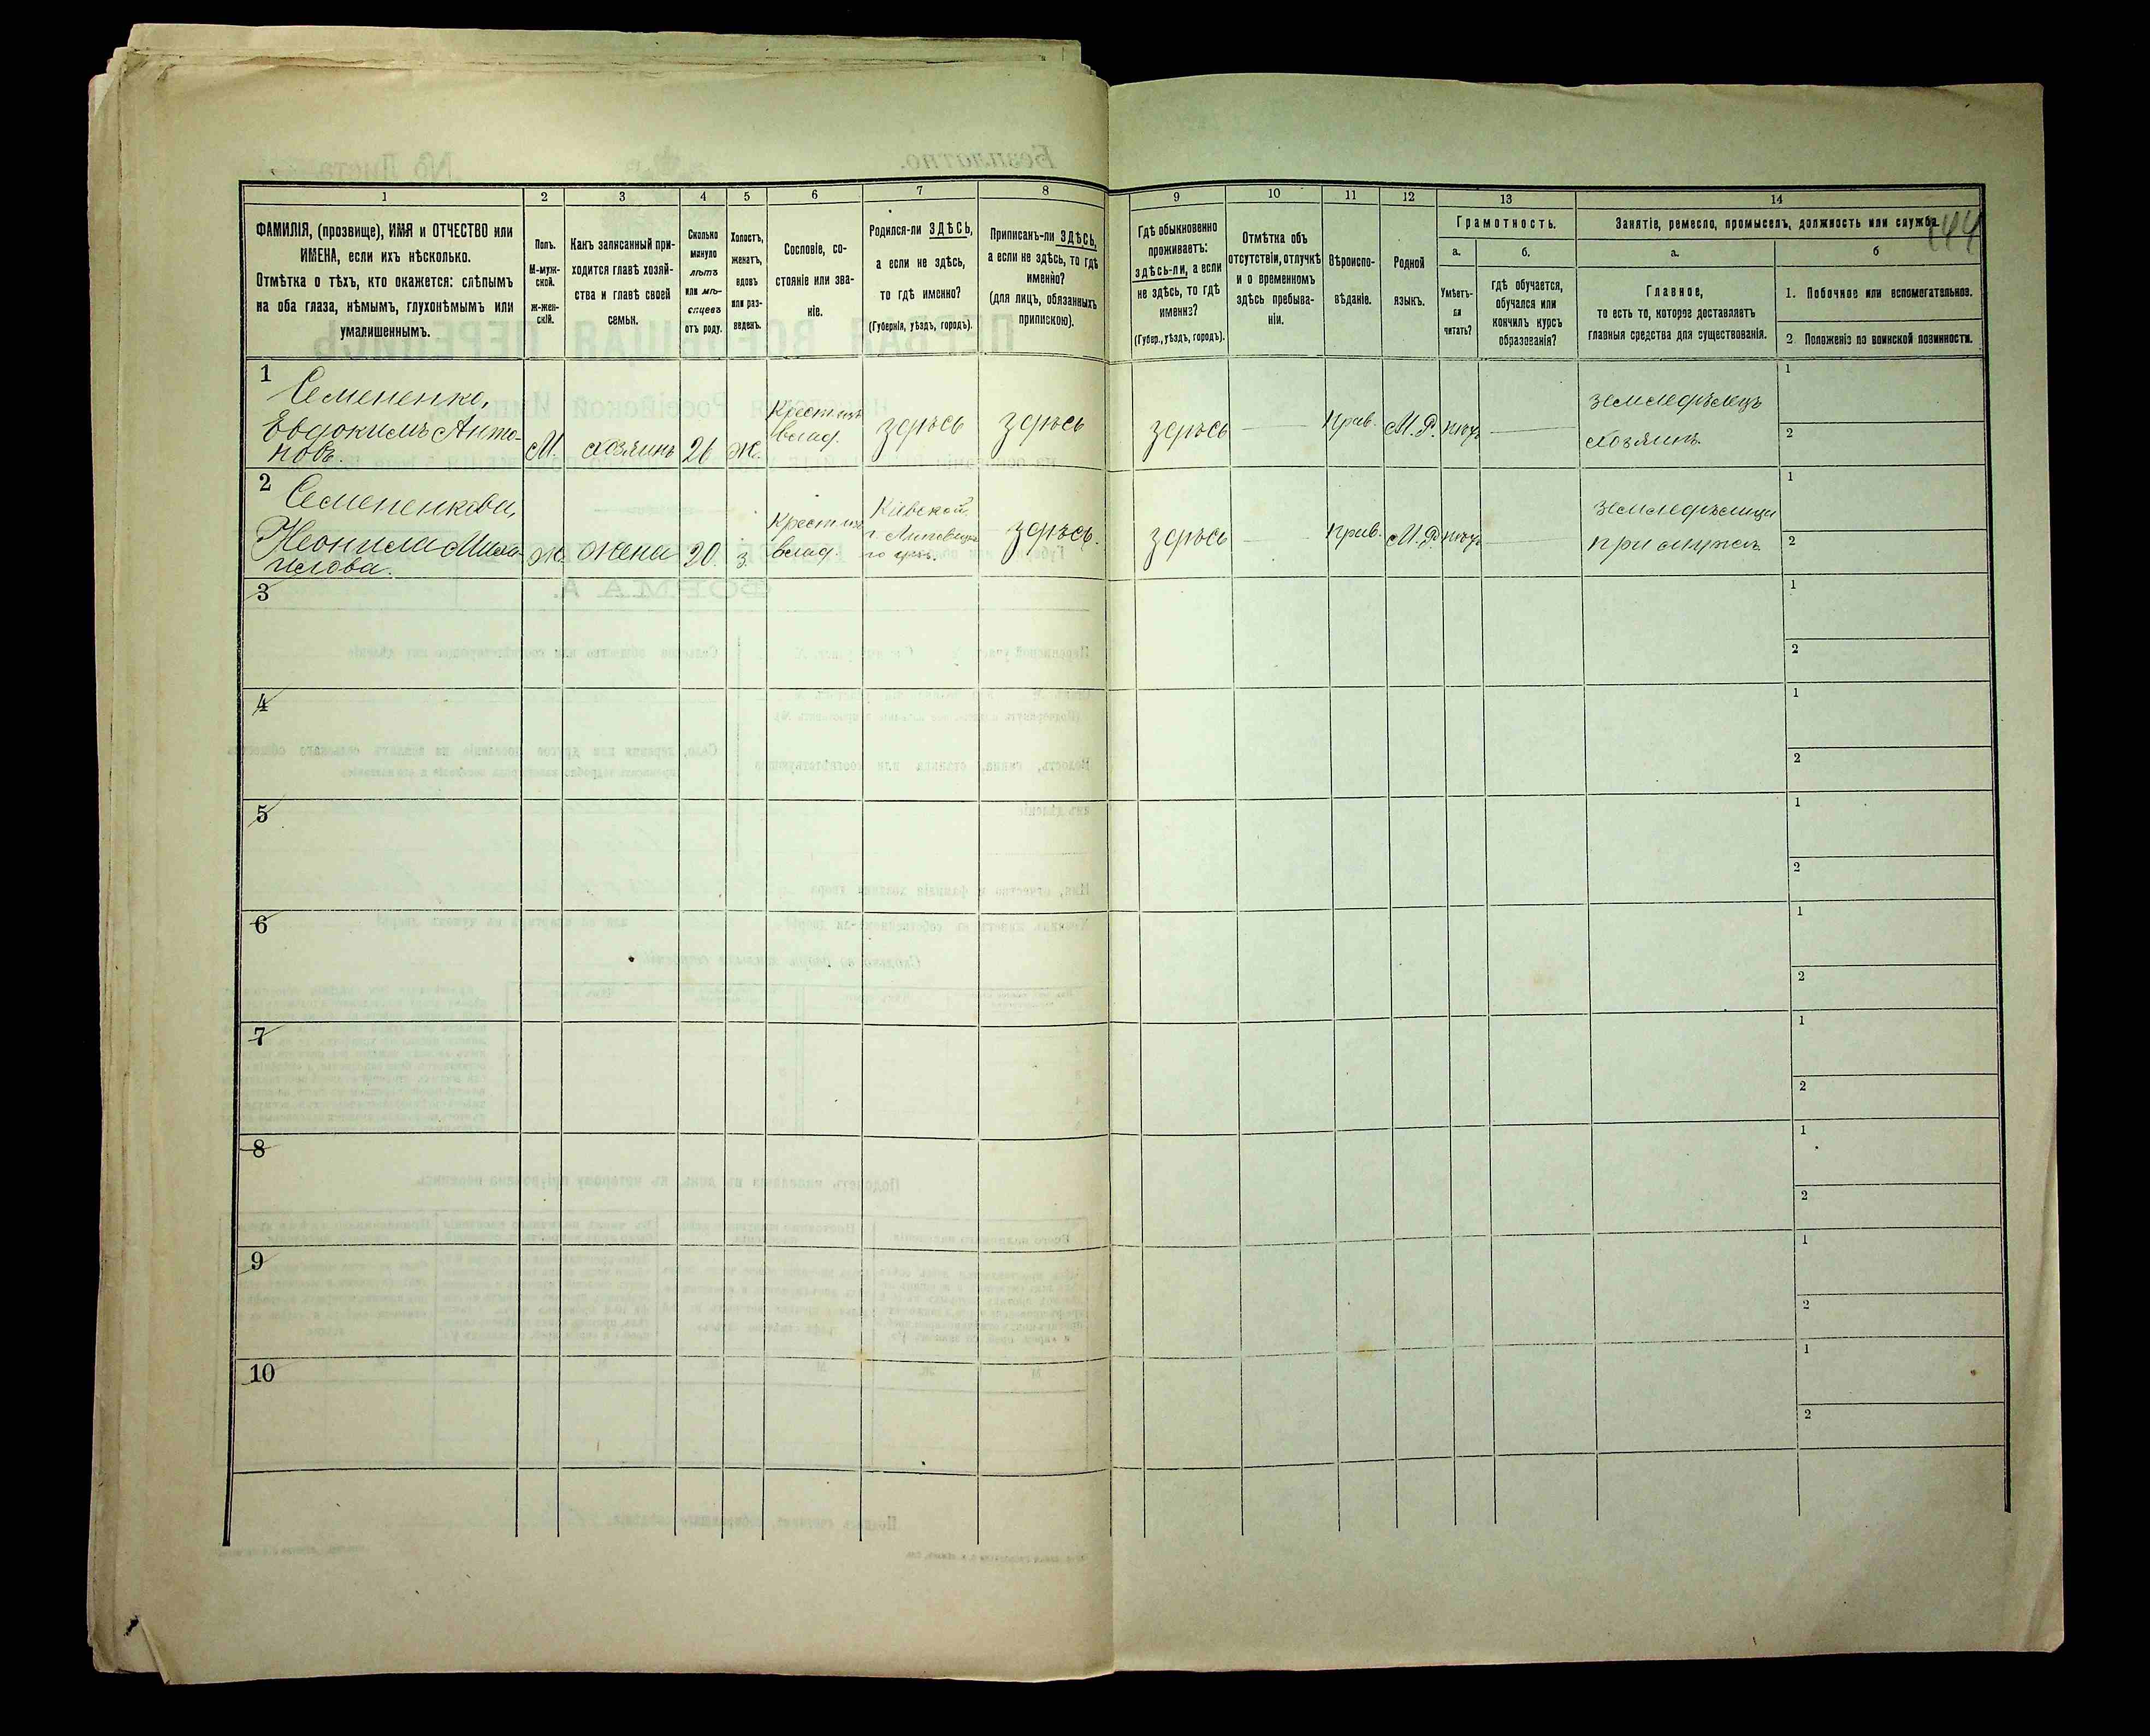 1 2 3 4 5 6 7 8 9 10 11 12 13 14
ФАМИЛІЯ, (прозвище), ИМЯ и ОТЧЕСТВО или
ИМЕНА, если ихъ нѣсколько.
Отмѣтка о тѣхъ, кто окажется: слѣпымъ
на оба глаза, нѣмымъ, глухонѣмымъ или
умалишеннымъ.
Полъ.
М-муж-
ской.
Ж-жен-
скій.
Какъ записанный при-
ходится главѣ хозяй-
ства и главѣ своей
семьи.
Сколько
минуло
лѣтъ
или мѣ-
сяцевъ
отъ роду.
Холостъ,
женатъ,
вдовъ
или раз-
веденъ.
Сословіе, со-
стояніе или зва-
ніе.
Родился-ли ЗДѢСЬ,
а если не здѣсь,
то гдѣ именно?
(Губернія, уѣздъ, городъ).
Приписанъ-ли ЗДѢСЬ,
а если не здѣсь, то гдѣ
именно?
(для лицъ, обязанныхъ
припискою).
Гдѣ обыкновенно
проживаетъ:
здѣсь-ли, а если
не здѣсь, то гдѣ
именно?
(Губер., уѣздъ, городъ).
Отмѣтка объ
отсутствіи, отлучкѣ
и о временномъ
здѣсь пребыва-
ніи.
Вѣроиспо-
вѣданіе.
Родной
языкъ.
Грамотность.
а.
Умѣетъ-
ли
читать?
б.
гдѣ обучается,
обучался или
кончилъ курсъ
образованія?
Занятіе, ремесло, промыселъ, должность или служба.
44
а.
Главное,
то есть то, которое доставляетъ
главныя средства для существованія.
б
1. Побочное или вспомогательное.
2. Положеніе по воинской повинности.
1
Семененко,
Евдокимъ Анто-
новъ.
М.
хозяинъ
26
ж.
Крест. изъ
влад.
здѣсь
здѣсь
здѣсь
Прав.
М.Р.
хозяинъ
земледѣлецъ
1
2
2
Семененкова,
Неонила Миха-
илова.
ж.
жена
20
з.
Крест. изъ
влад.
Кіевской
г. Липовецка-
го уѣз.
здѣсь.
здѣсь
Прав.
М.Р.
земледѣлица
при мужѣ.
1
2
3
1
2
4
1
2
5
1
2
6
1
2
7
1
2
8
1
2
9
1
2
10
1
2